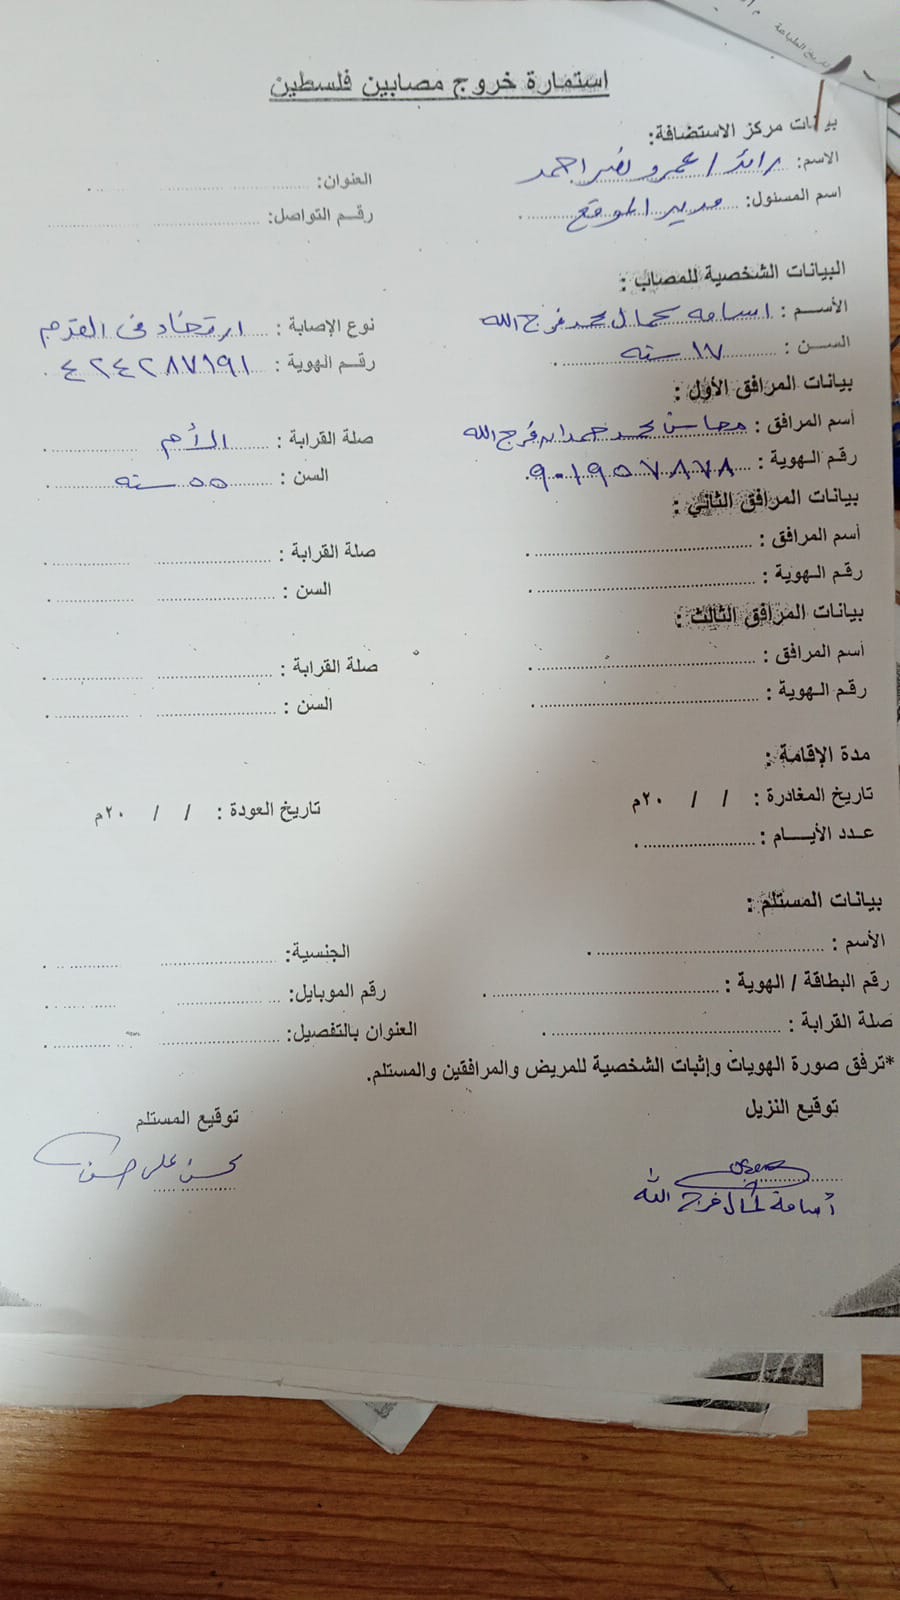 تاريخ الطباعة
استمارة خروج مصابين فلسطين
بيانات مركز الاستضافة:
الاسم: رائد / عمرو نصر احمد العنوان:
اسم المسئول: مدير الموقع رقم التواصل:
البيانات الشخصية للمصاب :
الأسم : اسامه كمال محمد فرج الله نوع الإصابة : ارتخاء فى القدم
السن : ١٧ سنه رقم الهوية : ٤٢٤٢٨٧١٩١
بيانات المرافق الأول :
أسم المرافق : محاسن محمد حمدان فرج الله صلة القرابة : الأم
رقم الهوية : ٩٠١٩٥٧٨٧٨ السن : ٥٥ سنه
بيانات المرافق الثاني :
أسم المرافق : صلة القرابة :
رقم الهوية : السن :
بيانات المرافق الثالث :
أسم المرافق : صلة القرابة :
رقم الهوية : السن :
مدة الإقامة :
تاريخ المغادرة : / / ٢٠م تاريخ العودة : / / ٢٠م
عدد الأيام :
بيانات المستلم :
الأسم : الجنسية:
رقم البطاقة / الهوية : رقم الموبايل:
صلة القرابة : العنوان بالتفصيل:
*ترفق صورة الهويات وإثبات الشخصية للمريض والمرافقين والمستلم.
توقيع النزيل توقيع المستلم
محسن على حسن
أسامة كمال فرج الله